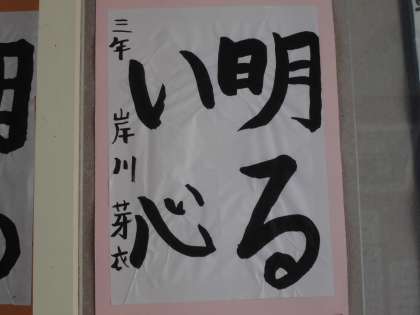 明る
い心
三年 岸川 芽衣